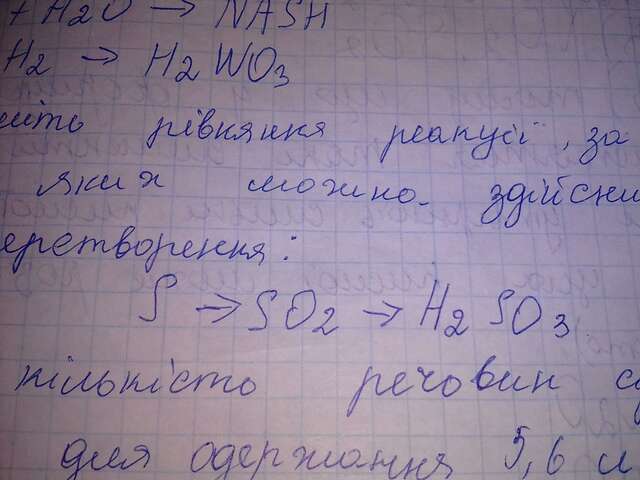 + H2O → NASH
H2 → H2WO3
ить рівняння реакцій, за
яких можно здійсни
еретворення:
S → SO2 → H2SO3
кількісто речовин с
для одержання 5,6 л